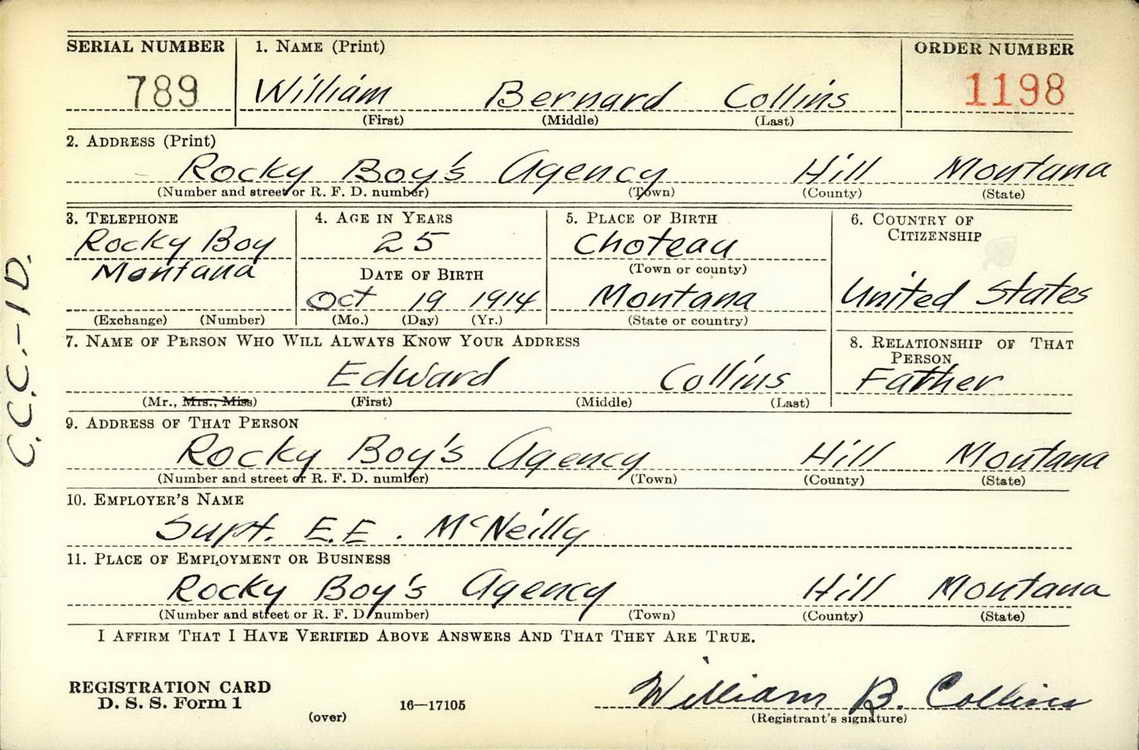 SERIAL NUMBER 1. NAME (Print) ORDER NUMBER
789 William Bernard Collins 1198
(First) (Middle) (Last)
2. ADDRESS (Print)
Rocky Boy's Agency Hill Montana
(Number and street or R. F. D. number) (Town) (County) (State)
3. TELEPHONE 4. AGE IN YEARS 5. PLACE OF BIRTH 6. COUNTRY OF
CITIZENSHIP
Rocky Boy 25 Choteau
Montana DATE OF BIRTH (Town or county)
Oct 19 1914 Montana United States
(Exchange) (Number) (Mo.) (Day) (Yr.) (State or country)
7. NAME OF PERSON WHO WILL ALWAYS KNOW YOUR ADDRESS 8. RELATIONSHIP OF THAT
PERSON
Edward Collins Father
(Mr., Mrs., Miss) (First) (Middle) (Last)
9. ADDRESS OF THAT PERSON
Rocky Boy's Agency Hill Montana
(Number and street or R. F. D. number) (Town) (County) (State)
10. EMPLOYER'S NAME
Supt. E.E. McNeilly
11. PLACE OF EMPLOYMENT OR BUSINESS
Rocky Boy's Agency Hill Montana
(Number and street or R. F. D. number) (Town) (County) (State)
I AFFIRM THAT I HAVE VERIFIED ABOVE ANSWERS AND THAT THEY ARE TRUE.
REGISTRATION CARD
D. S. S. Form 1 William B. Collins
(over) 16—17105 (Registrant's signature)
C.C.C.-I D.